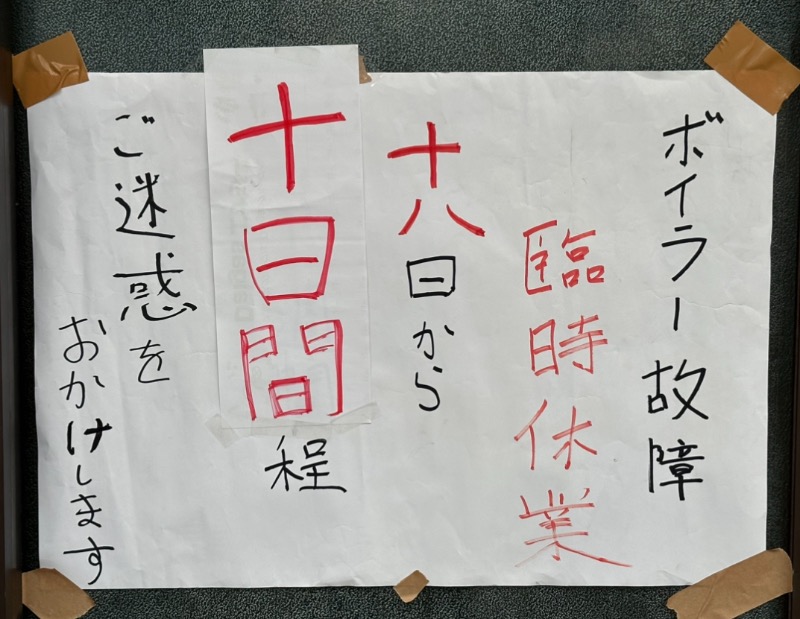 ボイラー故障
臨時休業
十八日から
十日間程
ご迷惑を
おかけします